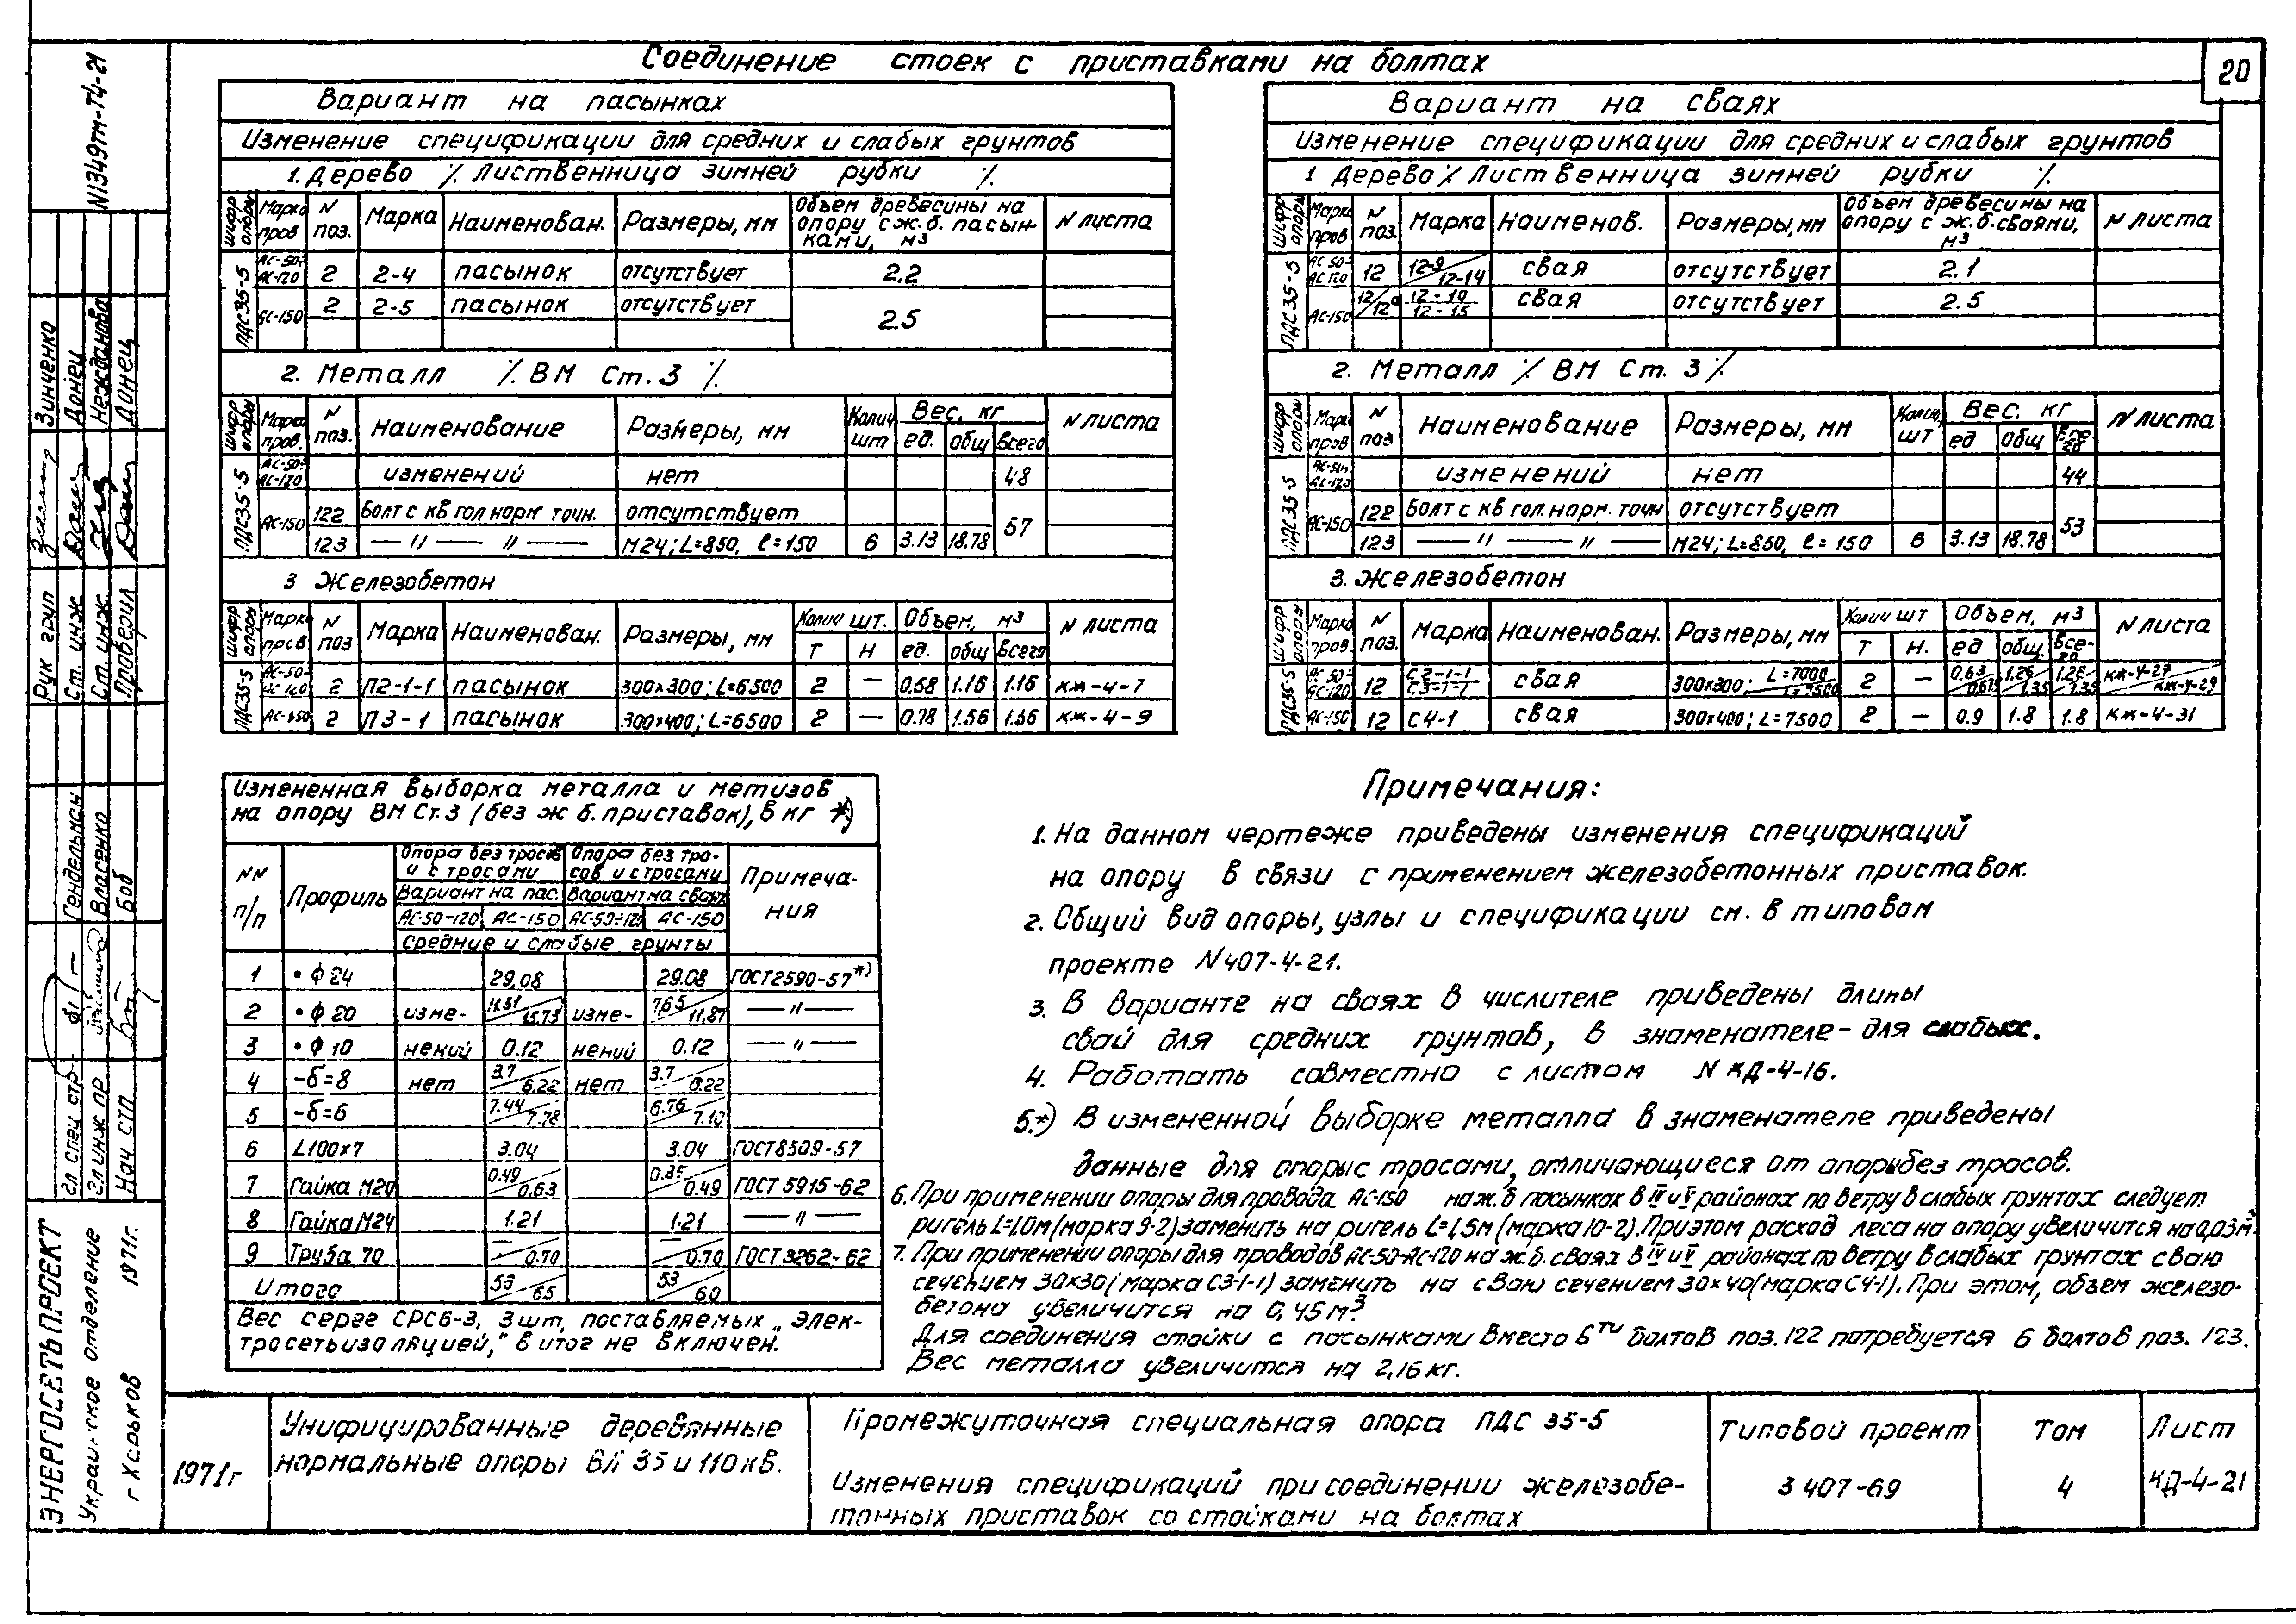 Соединение стоек с приставками на болтах
20
Вариант на пасынках
Изменение спецификации для средних и слабых грунтов
1. Дерево ٪ Лиственница зимней рубки ٪
Шифр опоры | Марка пров | N поз. | Марка | Наименован. | Размеры, мм | Объем древесины на опору с ж.б. пасынками, м³ | N листа
ПДС35-5 | АС-50÷АС-120 | 2 | 2-4 | пасынок | отсутствует | 2.2
АС-150 | 2 | 2-5 | пасынок | отсутствует | 2.5
2. Металл ٪ ВМ Ст.3 ٪
Шифр опоры | Марка пров. | N поз. | Наименование | Размеры, мм | Колич шт | Вес, кг | ед. | общ | всего | N листа
ПДС35-5 | АС-50÷АС-120 | изменений | нет | 48
АС-150 | 122 | Болт с кв гол норм точн. | отсутствует | 57
123 | — " — " — | М24; L=850, ℓ=150 | 6 | 3.13 | 18.78
3 Железобетон
Шифр опоры | Марка пров | N поз | Марка | Наименован. | Размеры, мм | Колич шт. | Т | Н | Объем, м³ | ед. | общ | Всего | N листа
ПДС35-5 | АС-50÷АС-120 | 2 | П2-1-1 | пасынок | 300×300; L=6500 | 2 | — | 0.58 | 1.16 | 1.16 | КЖ-4-7
АС-150 | 2 | П3-1 | пасынок | 300×400; L=6500 | 2 | — | 0.78 | 1.56 | 1.56 | КЖ-4-9
Вариант на сваях
Изменение спецификации для средних и слабых грунтов
1 Дерево ٪ Лиственница зимней рубки ٪
Шифр опоры | Марка пров | N поз. | Марка | Наименов. | Размеры, мм | Объем древесины на опору с ж.б. сваями, м³ | N листа
ПДС35-5 | АС50÷АС120 | 12 | 12-9/12-14 | свая | отсутствует | 2.1
АС-150 | 12/12а | 12-10/12-15 | свая | отсутствует | 2.5
2. Металл ٪ ВМ Ст. 3 ٪
Шифр опоры | Марка пров. | N поз | Наименование | Размеры, мм | Колич, шт | Вес, кг | ед | общ | Всего | N листа
ПДС35-5 | АС-50÷АС-120 | изменений | нет | 44
АС-150 | 122 | Болт с кв гол. норм. точн | отсутствует | 53
123 | — " — " — | М24; L=850, ℓ=150 | 6 | 3.13 | 18.78
3. Железобетон
Шифр опоры | Марка пров | N поз. | Марка | Наименован. | Размеры, мм | Колич шт | Т | Н. | Объем, м³ | ед | общ. | Всего | N листа
ПДС35-5 | АС-50÷АС-120 | 12 | С2-1-1/С3-1-1 | свая | 300×300; L=7000/L=7500 | 2 | — | 0.63/0.675 | 1.26/1.35 | 1.26/1.35 | КЖ-4-27/КЖ-4-29
АС-150 | 12 | С4-1 | свая | 300×400; L=7500 | 2 | — | 0.9 | 1.8 | 1.8 | КЖ-4-31
Измененная выборка металла и метизов
на опору ВМ Ст.3 (без ж б. приставок), в кг *)
NN п/п | Профиль | Опора без тросов и с тросами | Опора без тросов и с тросами | Примечания
Вариант на пас. | Вариант на сваях
АС-50÷120 | АС-150 | АС-50÷120 | АС-150
средние и слабые грунты
1 | • ф 24 | 29.08 | 29.08 | ГОСТ2590-57*)
2 | • ф 20 | изме- | 11.51/15.73 | изме- | 7.65/11.87 | — " —
3 | • ф 10 | нений | 0.12 | нений | 0.12 | — " —
4 | -б=8 | нет | 3.7/6.22 | нет | 3.7/6.22
5 | -б=6 | 7.44/7.78 | 6.76/7.10
6 | L100×7 | 3.04 | 3.04 | ГОСТ8509-57
7 | Гайка М20 | 0.49/0.63 | 0.35/0.49 | ГОСТ 5915-62
8 | Гайка М24 | 1.21 | 1.21 | — " —
9 | Труба 70 | —/0.70 | —/0.70 | ГОСТ3262-62
Итого | 53/65 | 53/60
Вес серег СРС6-3, 3 шт, поставляемых „Элек-
тросетьизоляцией," в итог не включен.
Примечания:
1. На данном чертеже приведены изменения спецификаций
на опору в связи с применением железобетонных приставок.
2. Общий вид опоры, узлы и спецификации см. в типовом
проекте N407-4-21.
3. В варианте на сваях в числителе приведены длины
свай для средних грунтов, в знаменателе- для слабых.
4. Работать совместно с листом N КД-4-16.
5.*) В измененной выборке металла в знаменателе приведены
данные для опоры с тросами, отличающиеся от опоры без тросов.
6. При применении опоры для провода АС-150 на ж.б пасынках в IV и V районах по ветру в слабых грунтах следует
ригель L=1,0м (марка 9-2) заменить на ригель L=1,5м (марка 10-2). При этом расход леса на опору увеличится на 0,03м³.
7. При применении опоры для проводов АС-50-АС-120 на ж.б. сваях в IV и V районах по ветру в слабых грунтах сваю
сечением 30×30 (марка С3-1-1) заменить на сваю сечением 30×40 (марка С4-1). При этом, объем железо-
бетона увеличится на 0,45м³.
Для соединения стойки с пасынками вместо 6ти болтов поз. 122 потребуется 6 болтов поз. 123.
Вес металла увеличится на 2,16 кг.
1971г
Унифицированные деревянные
нормальные опоры ВЛ 35 и 110 кВ.
Промежуточная специальная опора ПДС 35-5
Изменения спецификаций при соединении железобе-
тонных приставок со стойками на болтах
Типовой проект
3 407-69
Том
4
Лист
КД-4-21
N1349тм-Т4-21
Рук груп Зинченко
Ст. инж. Донец
Ст. инж. Нежданова
Проверил Донец
Гл спец стр- Гендельман
Гл инж пр Власенко
Нач СТП Боб
ЭНЕРГОСЕТЬПРОЕКТ
Украинское отделение
г Харьков 1971г.